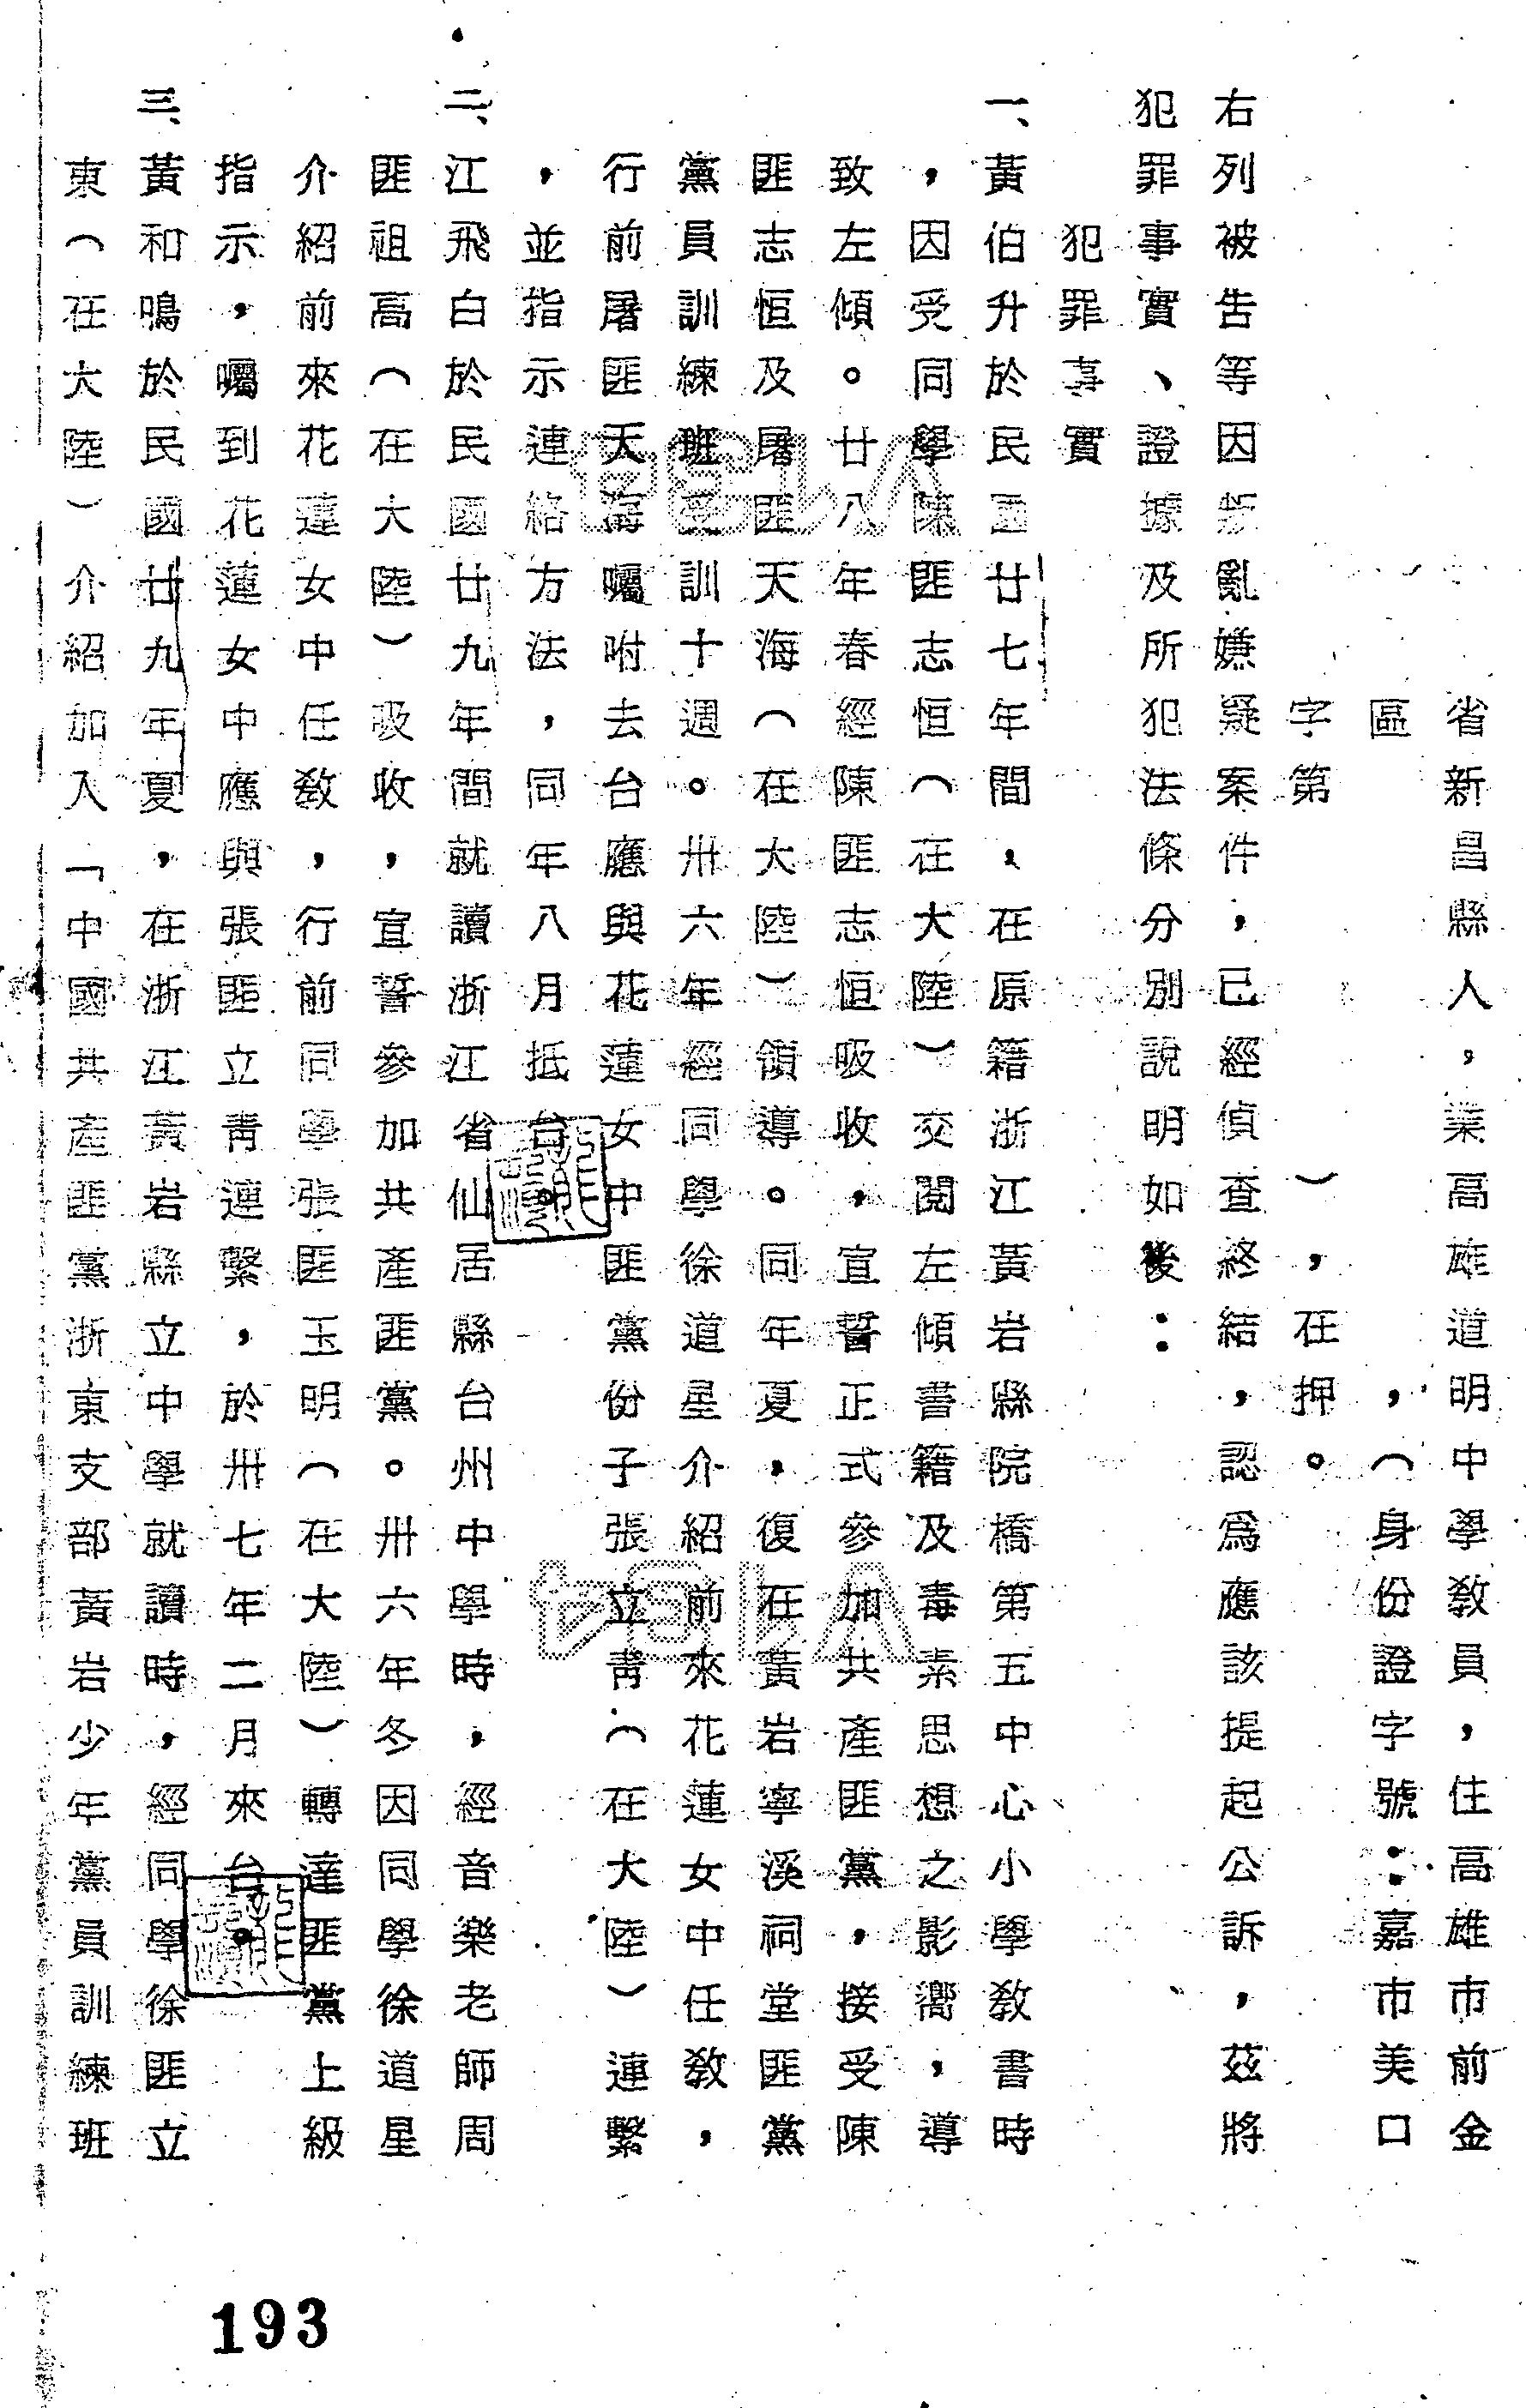 省新昌縣人，業高雄道明中學教員，住高雄市前金
區，（身份證字號：嘉市美口
字第），在押。
右列被告等因叛亂嫌疑案件，已經偵查終結，認爲應該提起公訴，茲將
犯罪事實、證據及所犯法條分別說明如後：
犯罪事實
一、黃伯升於民國廿七年間，在原籍浙江黃岩縣院橋第五中心小學教書時
，因受同學陳匪志恒（在大陸）交閱左傾書籍及毒素思想之影嚮，導
致左傾。廿八年春經陳匪志恒吸收，宣誓正式參加共產匪黨，接受陳
匪志恒及屠匪天海（在大陸）領導。同年夏，復在黃岩寧溪祠堂匪黨
黨員訓練班受訓十週。卅六年經同學徐道星介紹前來花蓮女中任教，
行前屠匪天海囑咐去台應與花蓮女中匪黨份子張立青（在大陸）連繫
，並指示連絡方法，同年八月抵台。
二、江飛白於民國廿九年間就讀浙江省仙居縣台州中學時，經音樂老師周
匪祖高（在大陸）吸收，宣誓參加共產匪黨。卅六年冬因同學徐道星
介紹前來花蓮女中任教，行前同學張匪玉明（在大陸）轉達匪黨上級
指示，囑到花蓮女中應與張匪立青連繫，於卅七年二月來台。
三、黃和鳴於民國廿九年夏，在浙江黃岩縣立中學就讀時，經同學徐匪立
東（在大陸）介紹加入「中國共產匪黨浙東支部黃岩少年黨員訓練班
193